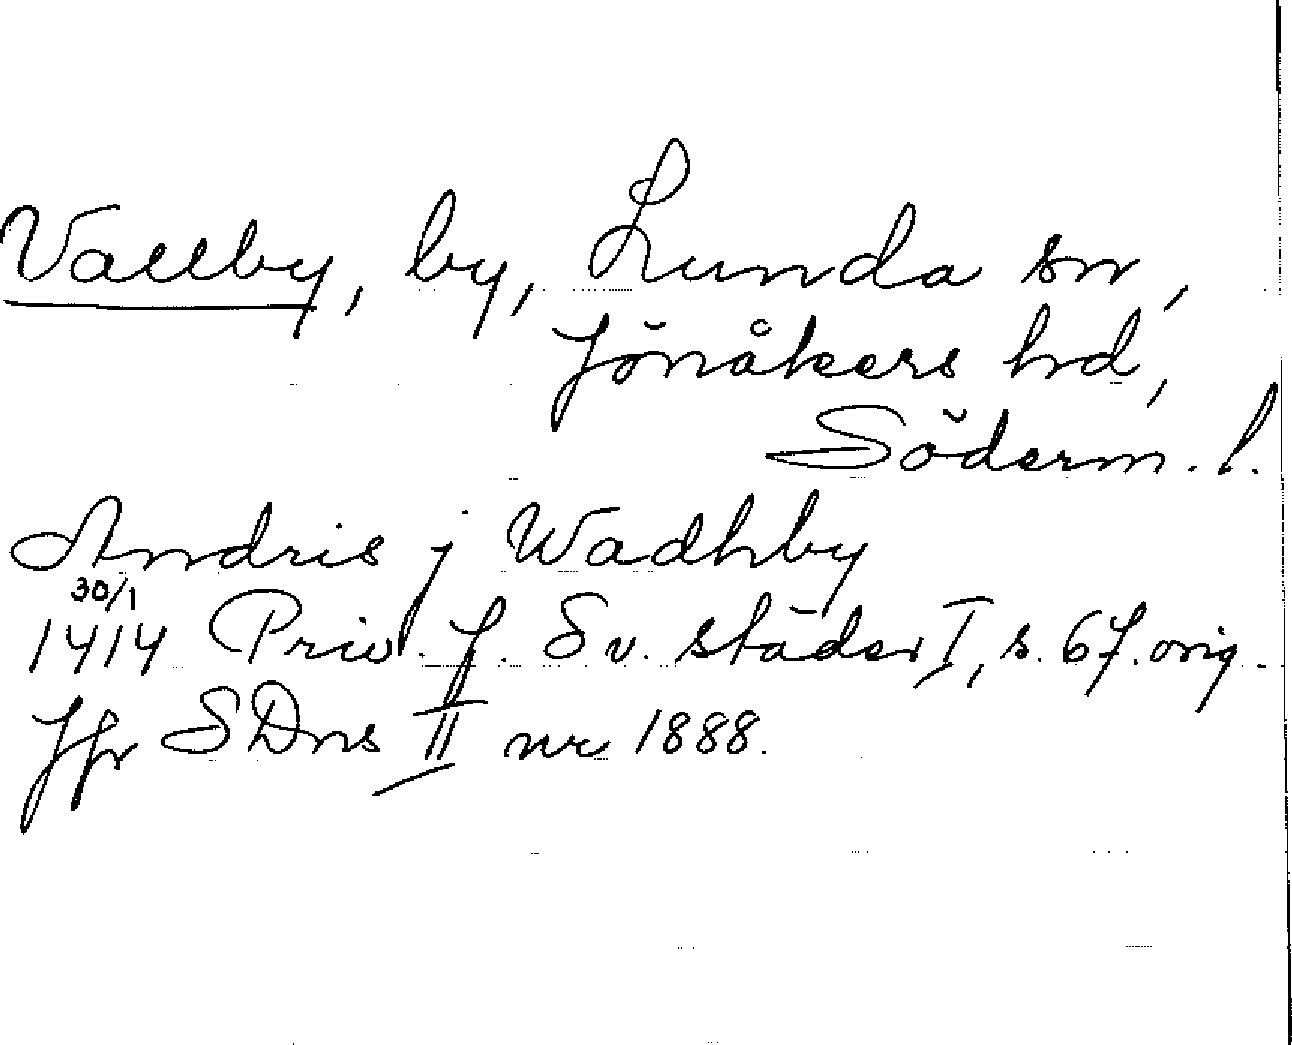 Vallby, by, Lunda sn,
Jönåkers hd,
Söderm. l.
Andris j Wadhby
30/1
1414 Priv. f. Sv. städer I, s. 67. orig.
Jfr SDns II nr 1888.